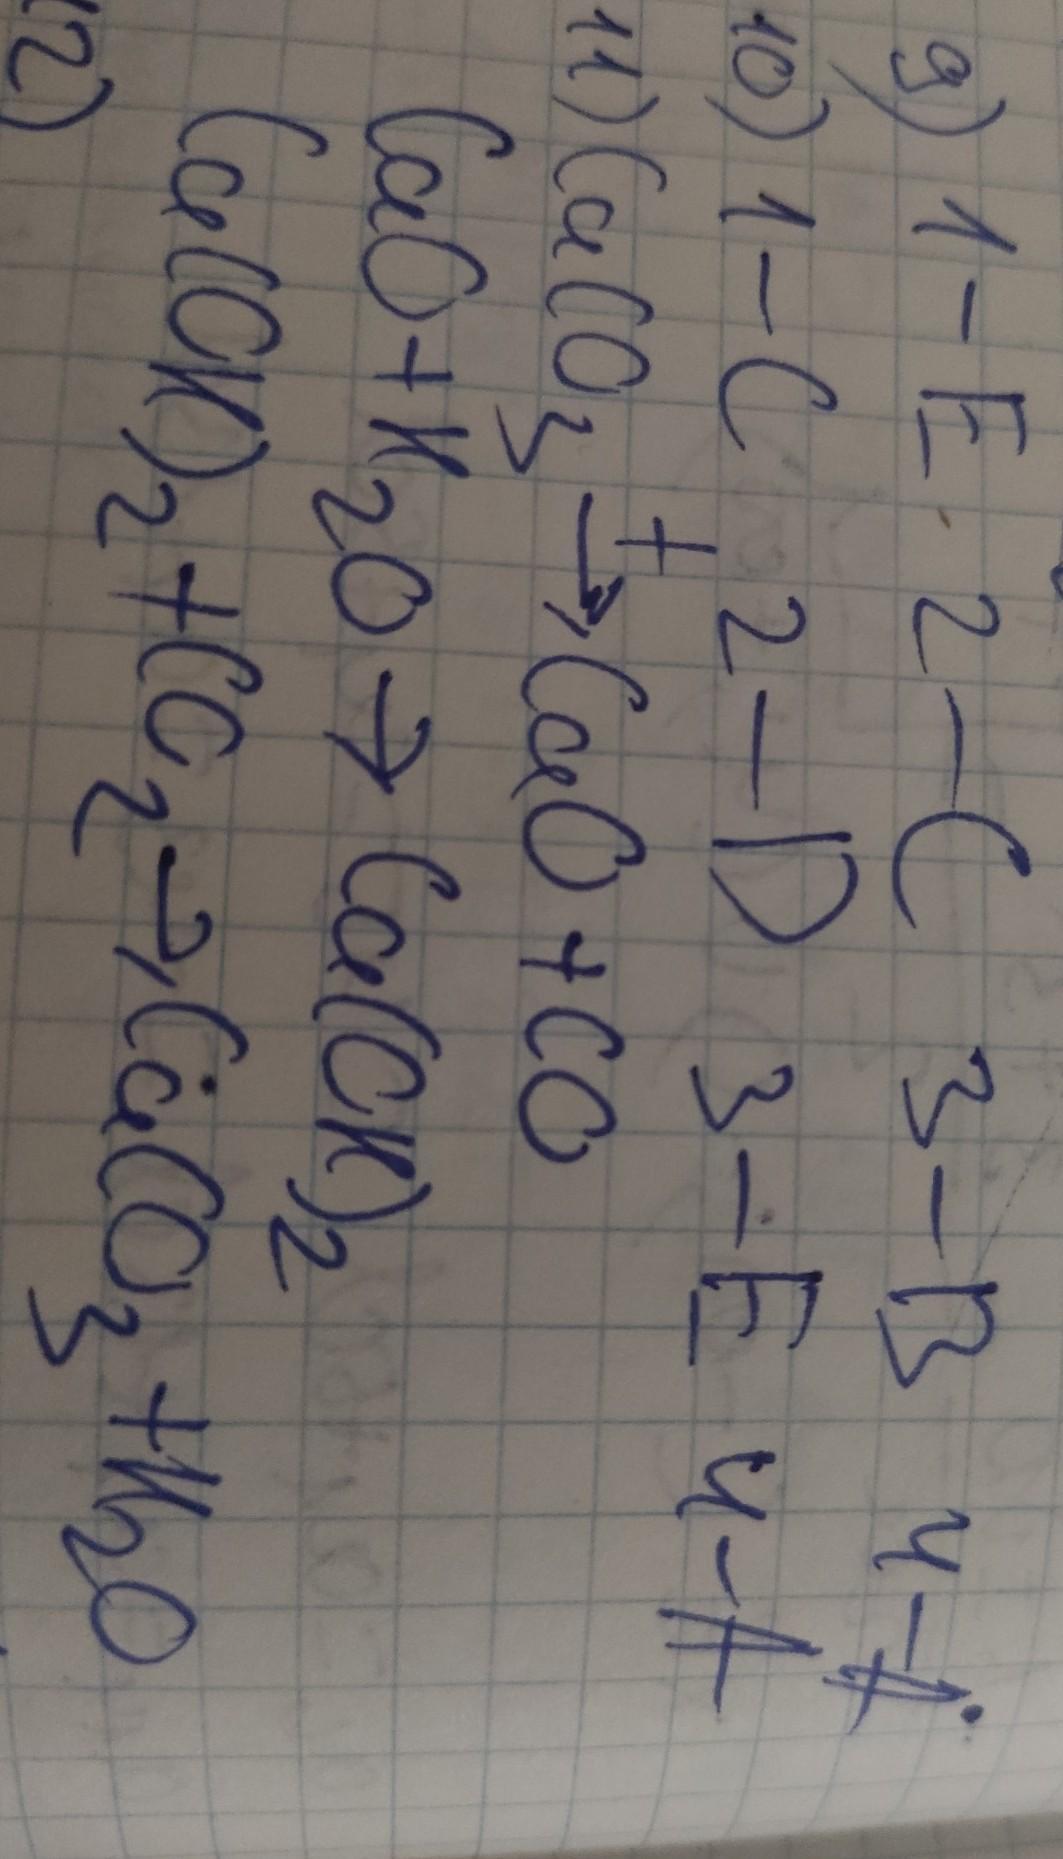 9) 1-E 2-C 3-B 4-A
10) 1-C 2-D 3-E 4-A
t
11) CaCO3 → CaO + CO
CaO + H2O → Ca(OH)2
Ca(OH)2 + CO2 → CaCO3 + H2O
12)